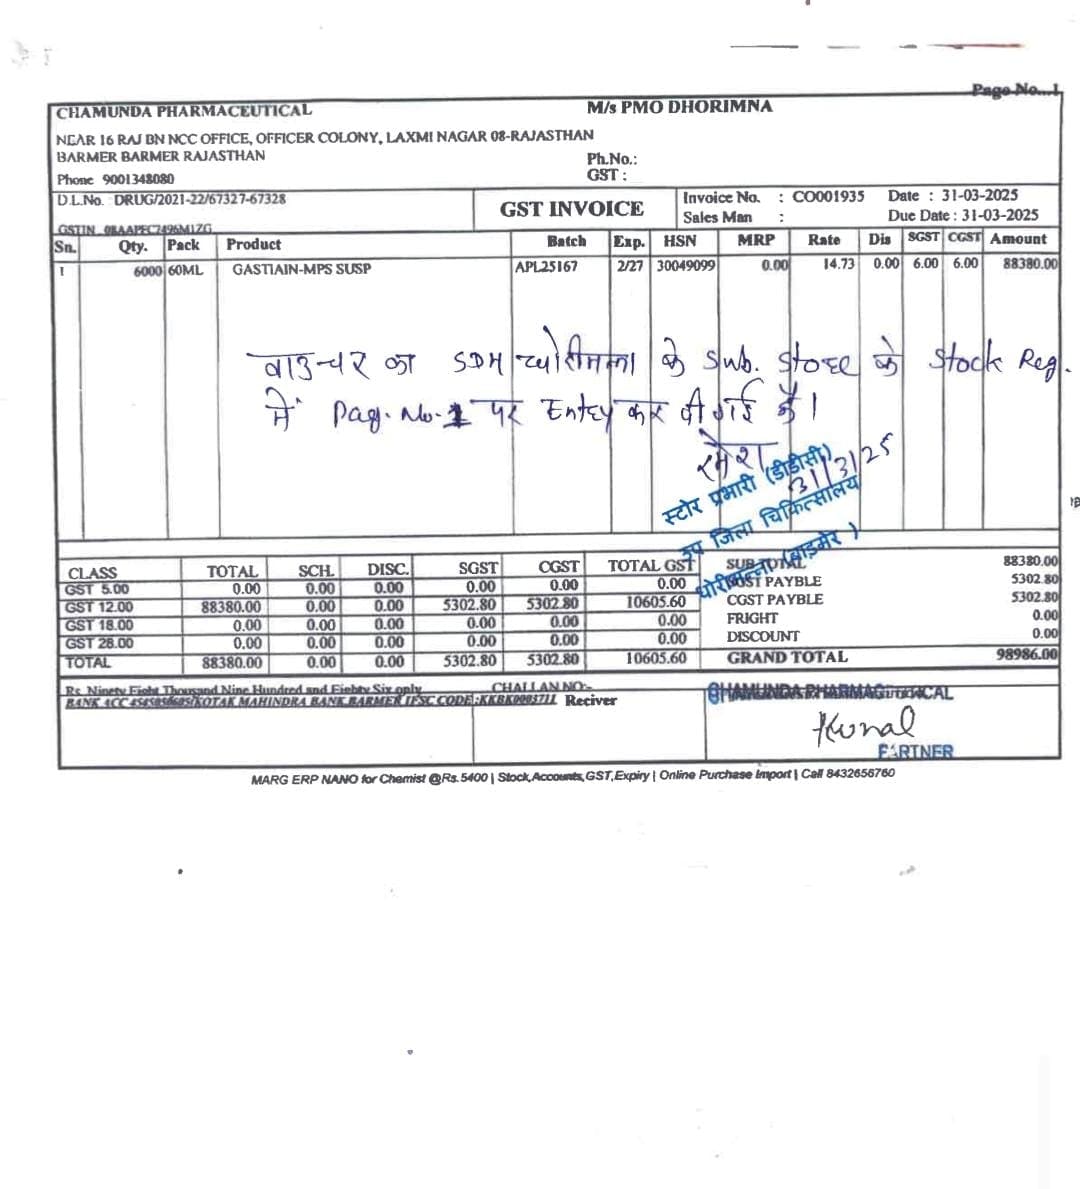 Page No...1
CHAMUNDA PHARMACEUTICAL
M/s PMO DHORIMNA
NEAR 16 RAJ BN NCC OFFICE, OFFICER COLONY, LAXMI NAGAR 08-RAJASTHAN
BARMER BARMER RAJASTHAN
Ph.No.:
Phone 9001348080
GST :
D.L.No. DRUG/2021-22/67327-67328
GST INVOICE
Invoice No. : CO001935 Date : 31-03-2025
Sales Man : Due Date : 31-03-2025
GSTIN 08AAPFC7496M1ZG
Sn. Qty. Pack Product Batch Exp. HSN MRP Rate Dis SGST CGST Amount
1 6000 60ML GASTIAIN-MPS SUSP APL25167 2/27 30049099 0.00 14.73 0.00 6.00 6.00 88380.00
वाउचर का SDH के Sub. Store के Stock Reg.
में Pag. No. 1 पर Entry कर दी गई है।
31/3/25
स्टोर प्रभारी (डीडीसी)
उप जिला चिकित्सालय
धोरीमन्ना (बाड़मेर)
CLASS TOTAL SCH. DISC. SGST CGST TOTAL GST
GST 5.00 0.00 0.00 0.00 0.00 0.00 0.00
GST 12.00 88380.00 0.00 0.00 5302.80 5302.80 10605.60
GST 18.00 0.00 0.00 0.00 0.00 0.00 0.00
GST 28.00 0.00 0.00 0.00 0.00 0.00 0.00
TOTAL 88380.00 0.00 0.00 5302.80 5302.80 10605.60
SUB TOTAL 88380.00
SGST PAYBLE 5302.80
CGST PAYBLE 5302.80
FRIGHT 0.00
DISCOUNT 0.00
GRAND TOTAL 98986.00
Rs. Ninety Eight Thousand Nine Hundred and Eighty Six only
CHALLAN NO:-
BANK ACC KOTAK MAHINDRA BANK BARMER IFSC CODE :KKBK0003711 Reciver
CHAMUNDA PHARMACEUTICAL
Kunal
PARTNER
MARG ERP NANO for Chemist @Rs. 5400 | Stock,Accounts,GST,Expiry | Online Purchase Import | Call 8432656760